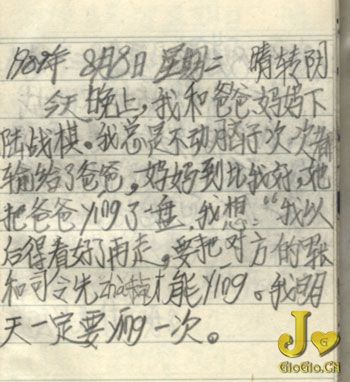 1989年 8月8日 星期二 晴转阴
今天晚上,我和爸爸、妈妈下
陆战棋。我总是不动脑子次次都
输给了爸爸,妈妈到比我好,她
把爸爸ying了一盘,我想:“我以
后得看好了再走,要把对方的
和司令先zha掉才能ying。我明
天一定要ying一次。
JoGioGio.CN